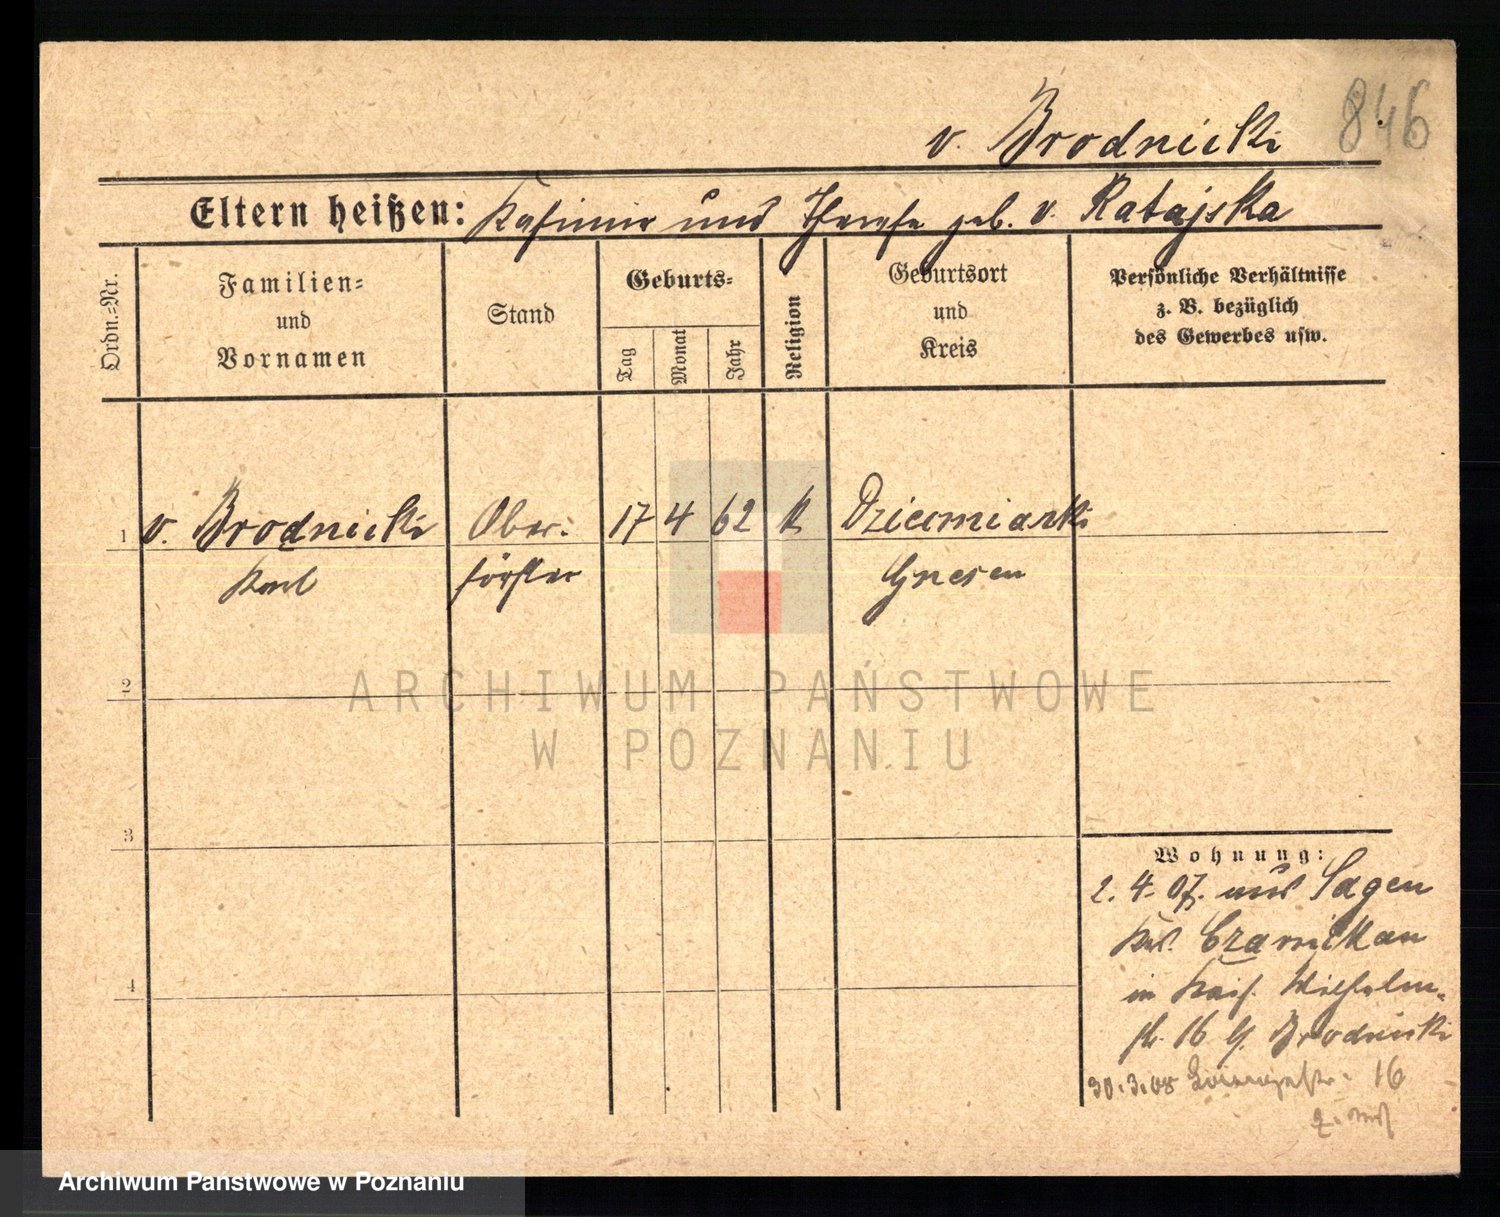 846
v. Brodnicki
Eltern heißen: Kasimir und Therese geb. v. Ratajska
Ordn.-Nr.
Familien-
und
Vornamen
Stand
Geburts-
Tag
Monat
Jahr
Religion
Geburtsort
und
Kreis
Persönliche Verhältnisse
z. B. bezüglich
des Gewerbes usw.
1 v. Brodnicki Ober- 17 4 62 k Dziecmiarki
Karl förster Gnesen
2
3
4
Wohnung:
2. 4. 07. aus
Krs. Czarnikau
in Kais. Wilhelm-
str. 16 b. Brodnicki
30.3.08 16
ARCHIWUM PAŃSTWOWE
W POZNANIU
Archiwum Państwowe w Poznaniu